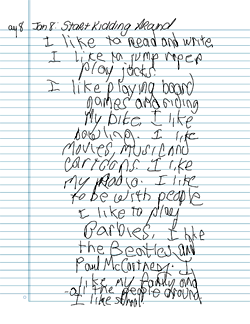 ay 8 Jan 8 Start Kidding Around
I like to Read and write.
I like to jump roper
Play jacks
I like playing board
games and riding
My bike. I like
bowling. I like
Movies, music and
cartoons. I like
my Radio. I like
to be with people
I like to play
Barbies. I like
the Beatles and
Paul McCartney. I
like my family and
all the people around.
I like school.